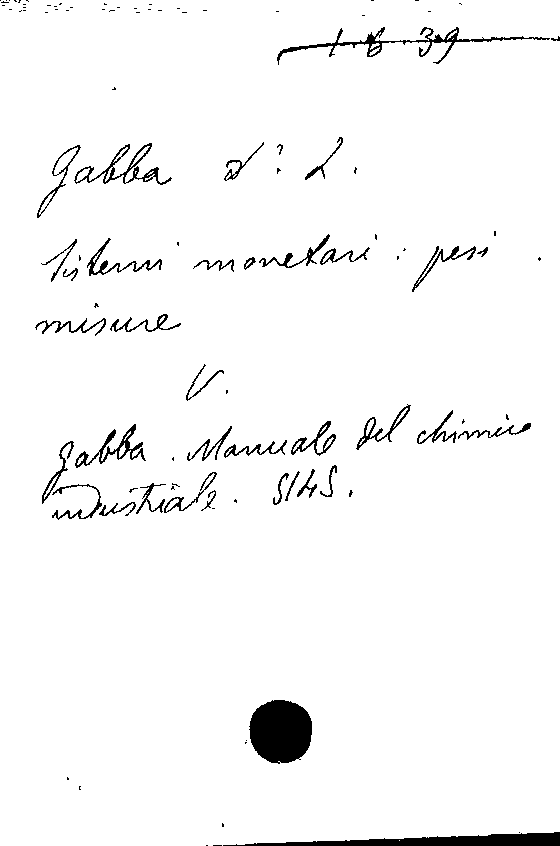 1.6.39
Gabba d: L.
Sistemi monetari : pesi .
misure
V.
Gabba . Manuale del chimico
industriale . 5145.